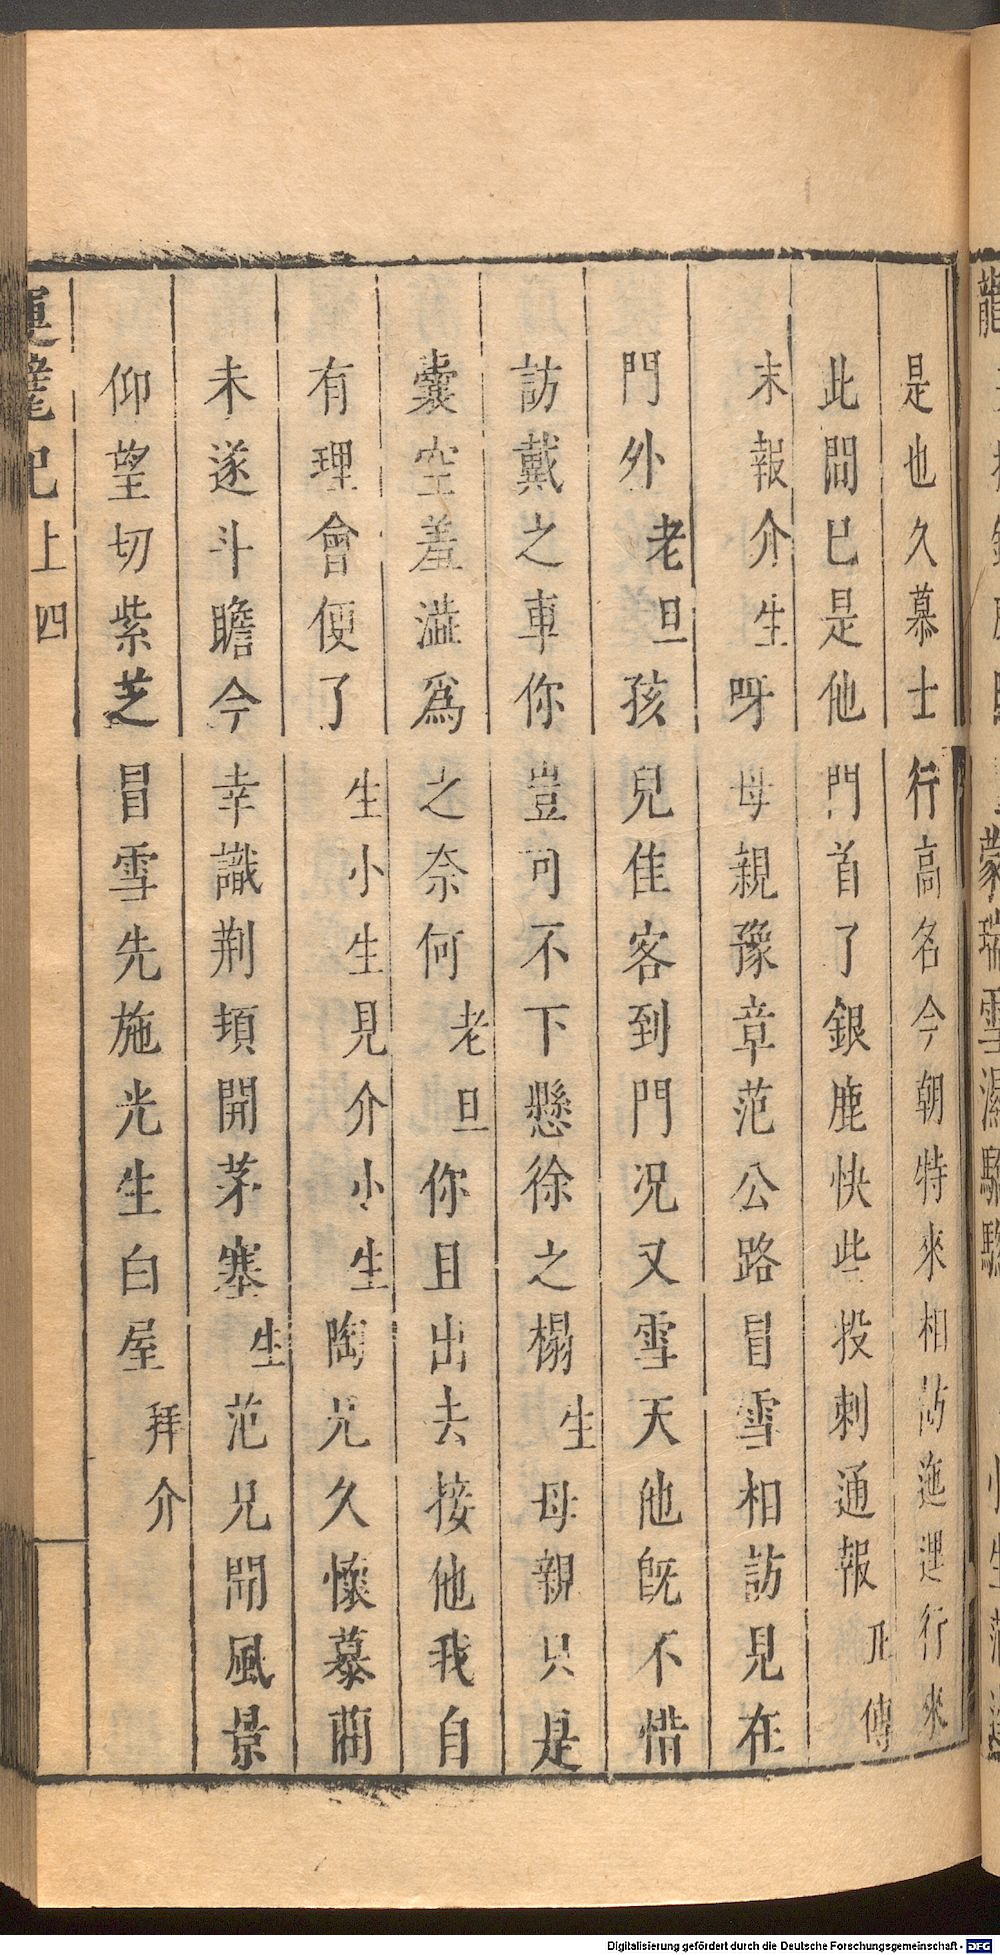 是也久慕士行高名今朝特來相訪迤逞行來
此間已是他門首了銀鹿快些投刺通報丑傳
末報介生呀母親豫章范公路冒雪相訪見在
門外老旦孩兒佳客到門况又雪天他既不惜
訪戴之車你豈可不下懸徐之榻生母親只是
囊空羞澁爲之奈何老旦你且出去接他我自
有理會便了生小生見介小生陶兄久懷慕藺
未遂斗瞻今幸識荆頓開茅塞生范兄閒風景
仰望切紫芝冒雪先施光生白屋拜介
運甓記上 四
Digitalisierung gefördert durch die Deutsche Forschungsgemeinschaft - DFG